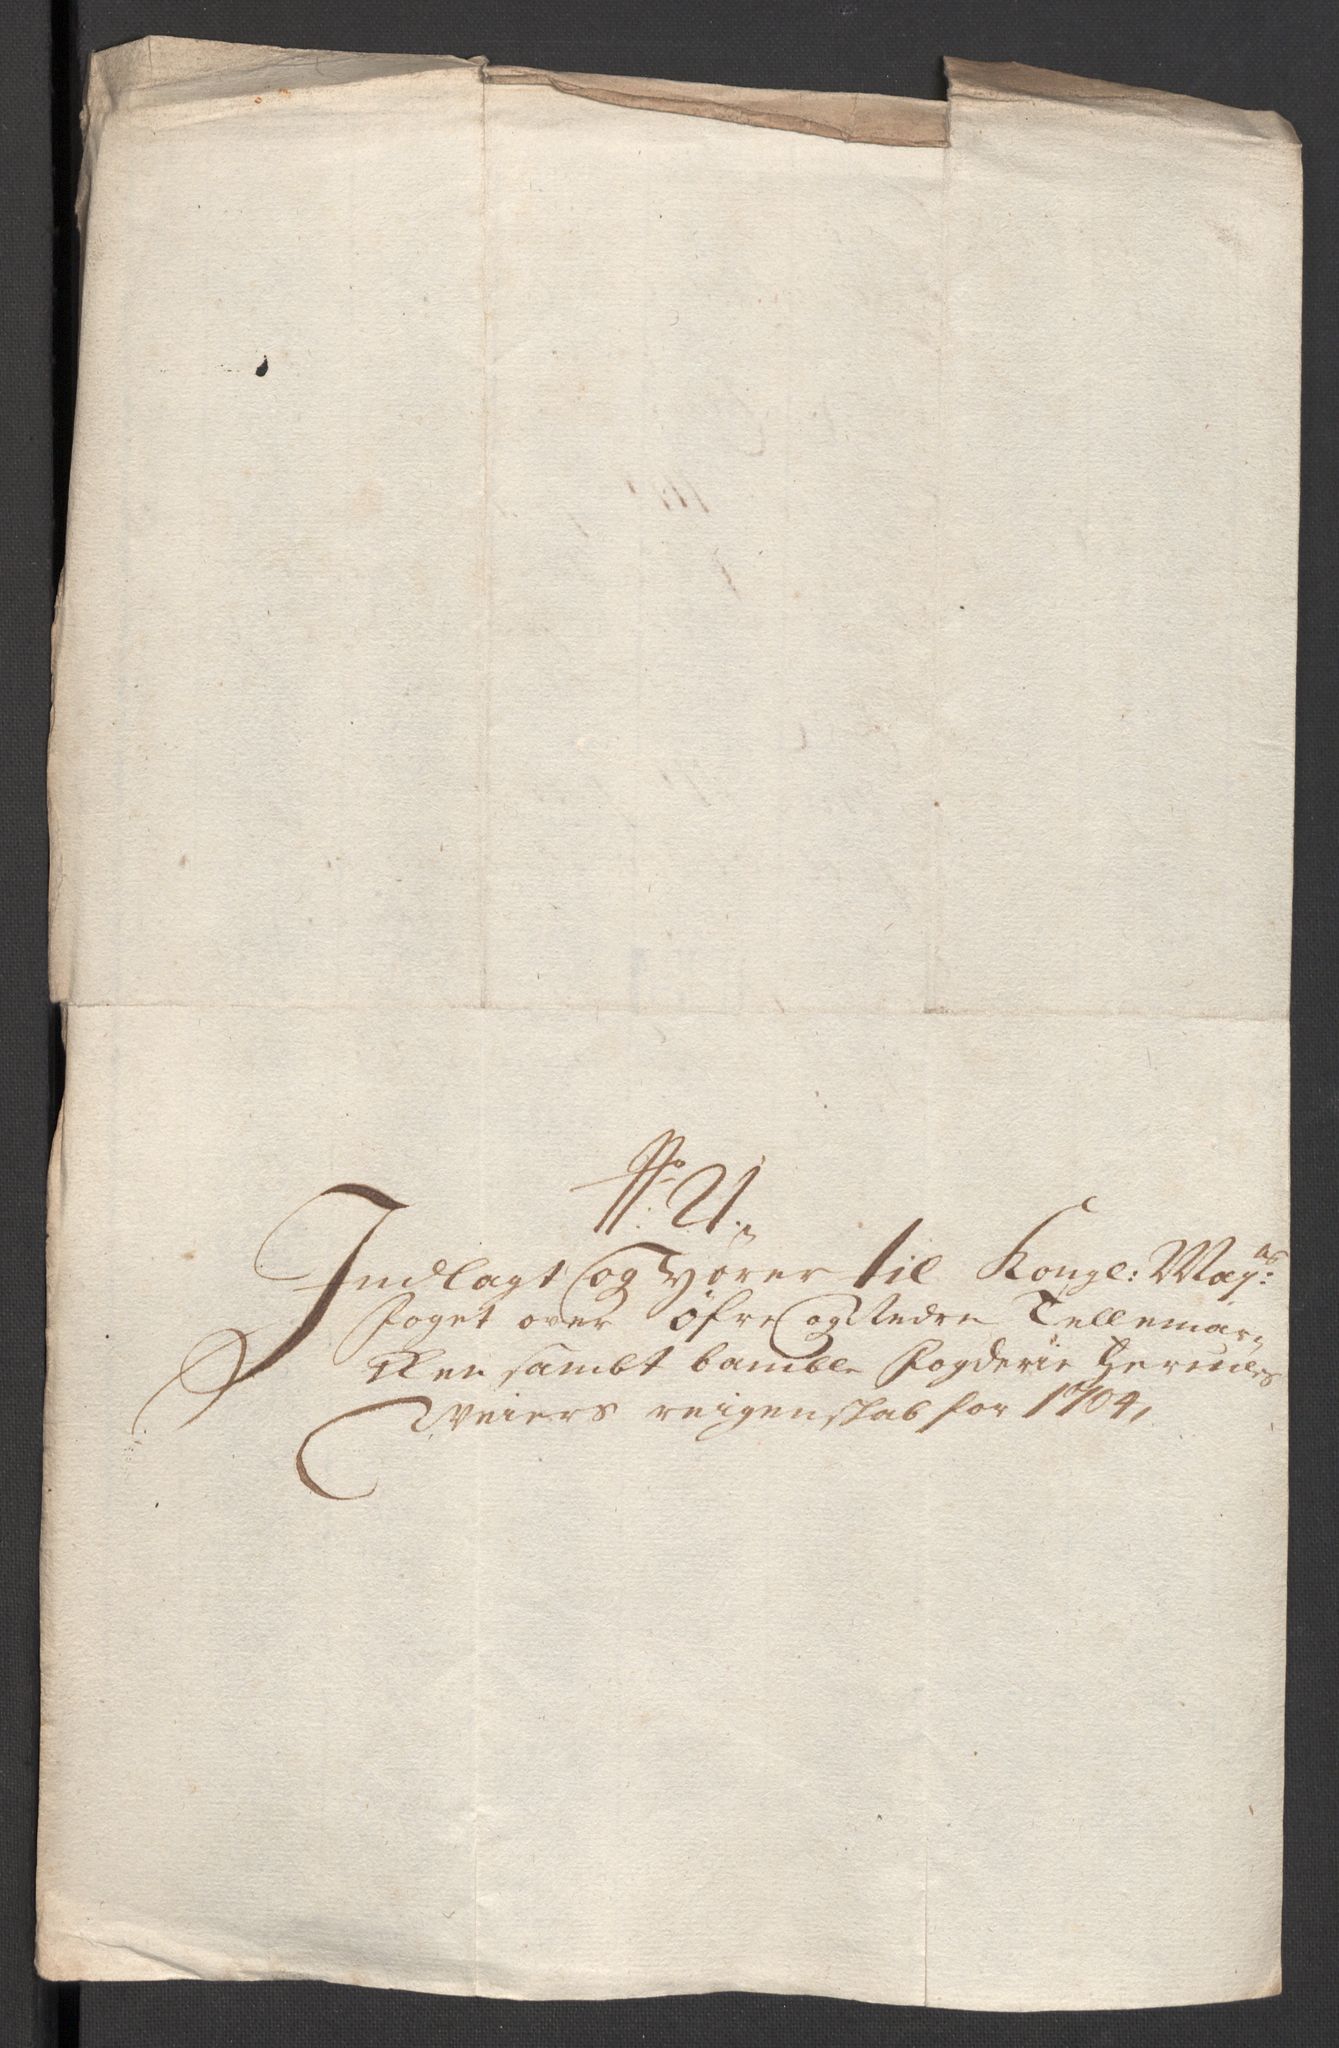 No: 21.
Indlagt og hörer til Kongl: May:ts
foget over öfre og Nedre Tellemar,,
Ken sambt bamble fogderie Hermes
Weiers reigenskab for 1704,